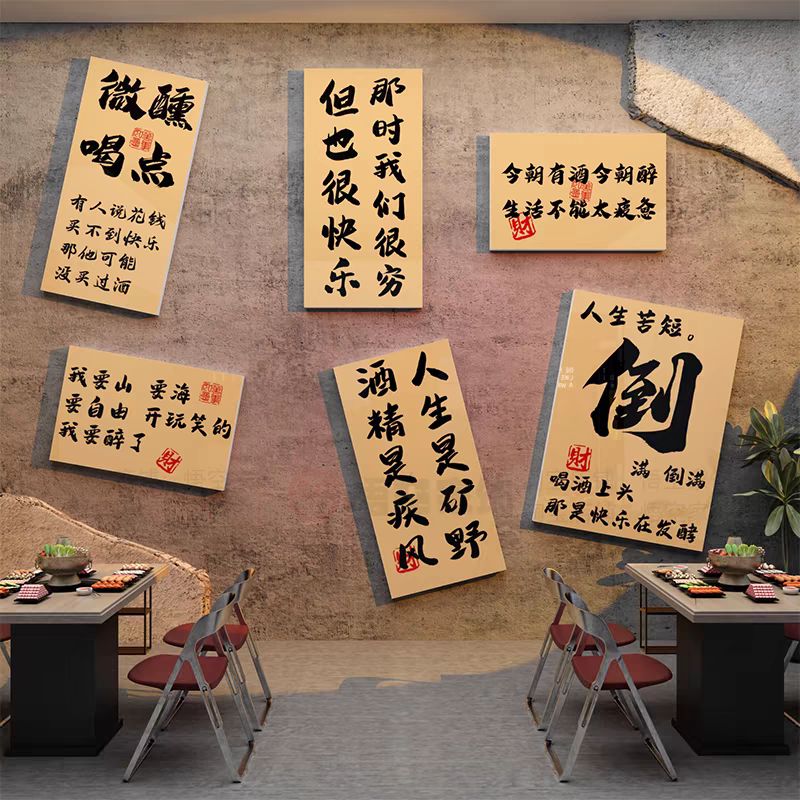 微醺
喝点
有人说花钱
买不到快乐
那他可能
没买过酒
那时我们很穷
但也很快乐
今朝有酒今朝醉
生活不能太疲惫
財
我要山 要海
要自由 开玩笑的
我要醉了
財
人生是矿野
酒精是疾风
財
人生苦短。
倒
满 倒满
財
喝酒上头
那是快乐在发酵